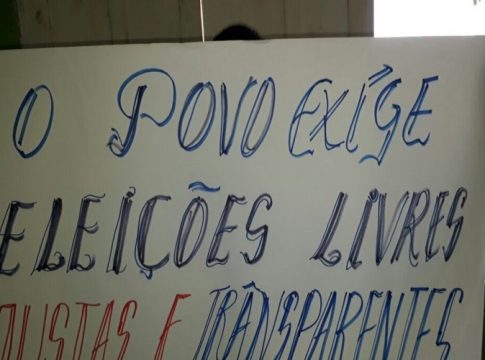 O POVO EXÍGE
ELEIÇÕES LIVRES
JUSTAS E TRÂNSPARENTES